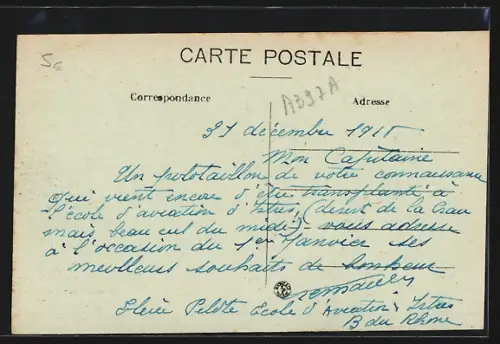 5€
CARTE POSTALE
A397A
Correspondance
Adresse
31 décembre 1918.
Mon Capitaine
Un pototaillon de votre connaissance
qui vient encore d'être transplanté à
l'école d'aviation d'Istres, (désert de la Crau
mais beau ciel du midi) - vous adresse
à l'occasion du 1er Janvier ses
meilleurs souhaits de bonheur
Elève Pilote Ecole d'Aviation Istres
B du Rhône